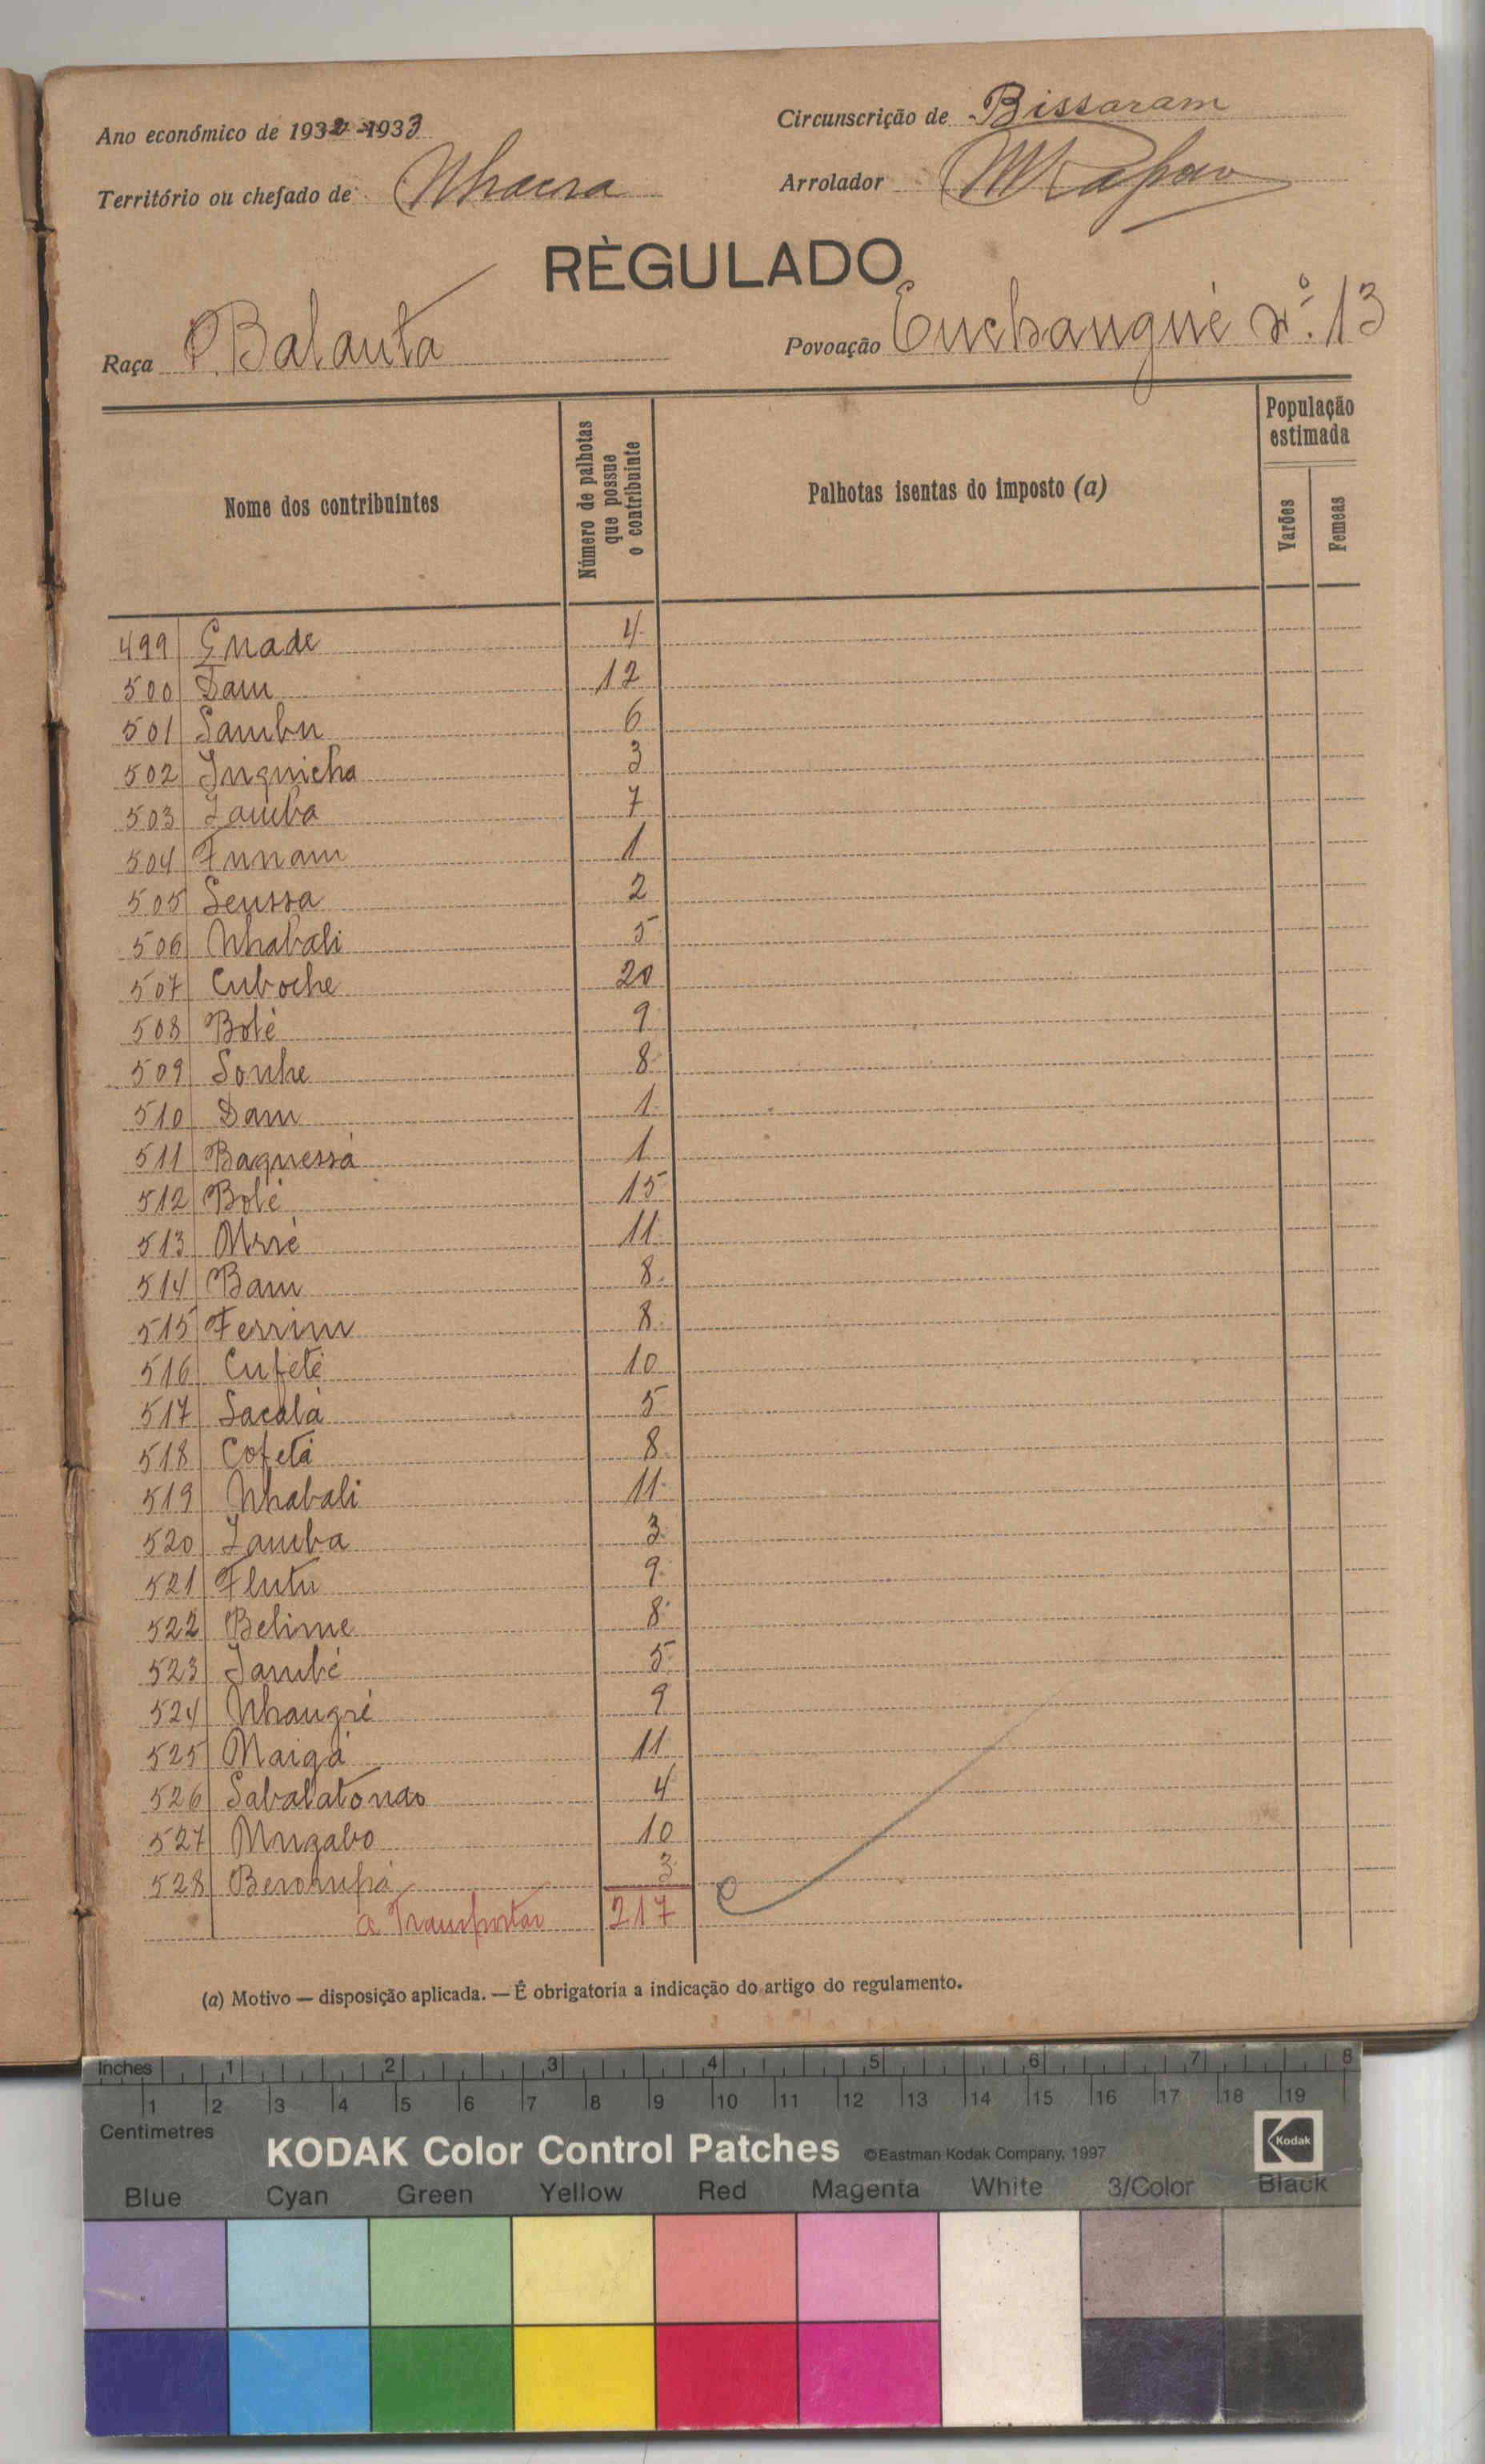 Ano económico de 1932-1933
Circunscrição de Bissaram
Território ou chefado de Nhacra
Arrolador
RÈGULADO
Raça Balanta
Povoação Enchangué Nº. 13
Nome dos contribuintes
Número de palhotas que possue o contribuinte
Palhotas isentas do imposto (a)
População estimada
Varões
Femeas
499 Gnade 4
500 Dam 12
501 Sambu 6
502 Inquicha 3
503 Zamba 7
504 Funam 1
505 Seussa 2
506 Nhabali 5
507 Cuboche 20
508 Bolé 9
509 Sonhe 8
510 Dam 1
511 Baquessá 1
512 Bolé 15
513 11
514 Bam 8
515 Ferrim 8
516 Cufeté 10
517 Sacalá 5
518 Cofetá 8
519 Nhabali 11
520 Zamba 3
521 Flutu 9
522 Belime 8
523 Jambé 5
524 Nhangré 9
525 Naigá 11
526 Sabalatonao 4
527 10
528 3
a Transportar 217
(a) Motivo — disposição aplicada. — É obrigatoria a indicação do artigo do regulamento.
Inches 1 2 3 4 5 6 7 8
1 2 3 4 5 6 7 8 9 10 11 12 13 14 15 16 17 18 19
Centimetres
KODAK Color Control Patches ©Eastman Kodak Company, 1997 Kodak
Blue Cyan Green Yellow Red Magenta White 3/Color Black